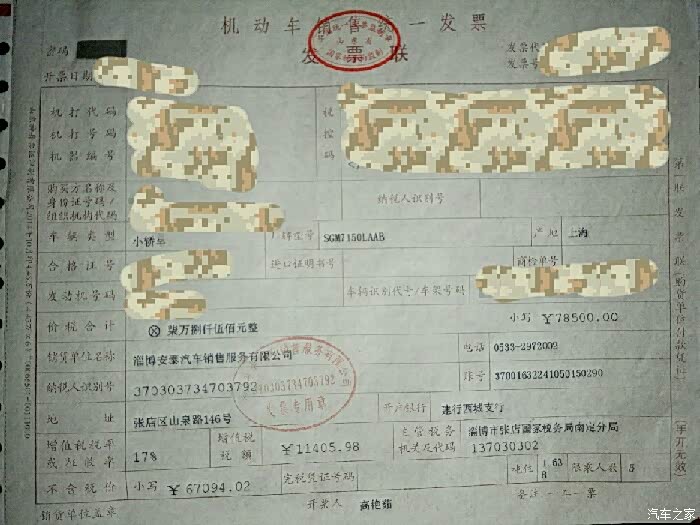 机动车销售统一发票
发票联
密码
发票代
开票日期
发票号
机打代码
机打号码
机器编号
税控码
购买方名称及
身份证号码/
组织机构代码
纳税人识别号
车辆类型 小轿车 厂牌型号 SGM7150LAAB 产地 上海
合格证号 进口证明书号 商检单号
发动机号码 车辆识别代号/车架号码
价税合计 ⊗ 柒万捌仟伍佰元整 小写 ¥78500.00
销货单位名称 淄博安泰汽车销售服务有限公司 电话 0533-2972002
纳税人识别号 370303734703792 账号 37001632241050150290
地址 张店区山泉路146号 开户银行 建行西城支行
增值税税率或征收率 17% 增值税税额 ¥11405.98 主管税务机关及代码 淄博市张店国家税务局南定分局 137030302
不含税价 小写 ¥67094.02 完税凭证号码 吨位 1.63 限乘人数 5
销货单位盖章 开票人 高艳茹 备注:一车一票
370303734703792
发票专用章
汽车之家